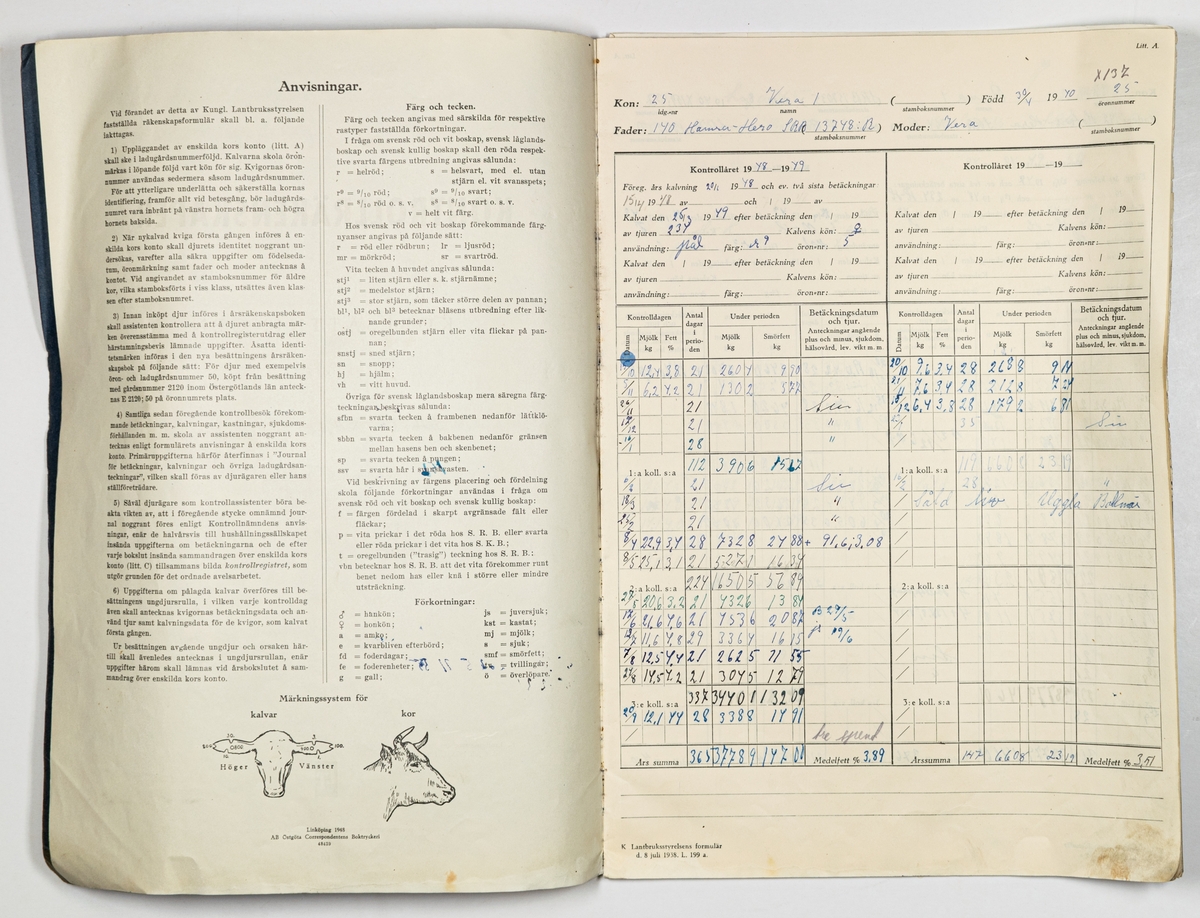 Anvisningar.
Vid förandet av detta av Kungl. Lantbruksstyrelsen
fastställda räkenskapsformulär skall bl. a. följande
iakttagas.
1) Uppläggandet av enskilda kors konto (litt. A)
skall ske i ladugårdsnummerföljd. Kalvarna skola öron-
märkas i löpande följd vart kön för sig. Kvigornas öron-
nummer användas sedermera såsom ladugårdsnummer.
För att ytterligare underlätta och säkerställa kornas
identifiering, framför allt vid betesgång, bör ladugårds-
numret vara inbränt på vänstra hornets fram- och högra
hornets baksida.
2) När nykalvad kviga första gången införes å en-
skilda kors konto skall djurets identitet noggrant un-
dersökas, varefter alla säkra uppgifter om födelseda-
tum, öronmärkning samt fader och moder antecknas å
kontot. Vid angivandet av stamboksnummer för äldre
kor, vilka stamboksförts i viss klass, utsättes även klas-
sen efter stamboksnumret.
3) Innan inköpt djur införes i årsräkenskapsboken
skall assistenten kontrollera att å djuret anbragta mär-
ken överensstämma med å kontrollregisterutdrag eller
härstamningsbevis lämnade uppgifter. Åsatta identi-
tetsmärken införas i den nya besättningens årsräken-
skapsbok på följande sätt: För djur med exempelvis
öron- och ladugårdsnummer 50, köpt från besättning
med gårdsnummer 2120 inom Östergötlands län anteck-
nas E 2120; 50 på öronnumrets plats.
4) Samtliga sedan föregående kontrollbesök förekom-
mande betäckningar, kalvningar, kastningar, sjukdoms-
förhållanden m. m. skola av assistenten noggrant an-
tecknas enligt formulärets anvisningar å enskilda kors
konto. Primäruppgifterna härför återfinnas i "Journal
för betäckningar, kalvningar och övriga ladugårdsan-
teckningar", vilken skall föras av djurägaren eller hans
ställföreträdare.
5) Såväl djurägare som kontrollassistenter böra be-
akta vikten av, att i föregående stycke omnämnd jour-
nal noggrant föres enligt Kontrollnämndens anvis-
ningar, enär de halvårsvis till hushållningssällskapet
insända uppgifterna om betäckningarna och de efter
varje bokslut insända sammandragen över enskilda kors
konto (litt. C) tillsammans bilda kontrollregistret, som
utgör grunden för det ordnade avelsarbetet.
6) Uppgifterna om pålagda kalvar överföras till be-
sättningens ungdjursrulla, i vilken varje kontrolldag
även skall antecknas kvigornas betäckningsdata och an-
vänd tjur samt kalvningsdata för de kvigor, som kalvat
första gången.
Ur besättningen avgående ungdjur och orsaken här-
till skall ävenledes antecknas i ungdjursrullan, enär
uppgifter härom skall lämnas vid årsbokslutet å sam-
mandrag över enskilda kors konto.
Färg och tecken.
Färg och tecken angivas med särskilda för respektive
rastyper fastställda förkortningar.
I fråga om svensk röd och vit boskap, svensk låglands-
boskap och svensk kullig boskap skall den röda respek-
tive svarta färgens utbredning angivas sålunda:
r = helröd; s = helsvart, med el. utan
stjärn el. vit svanspets;
r⁹ = ⁹/₁₀ röd; s⁹ = ⁹/₁₀ svart;
r⁸ = ⁸/₁₀ röd o. s. v. s⁸ = ⁸/₁₀ svart o. s. v.
v = helt vit färg.
Hos svensk röd och vit boskap förekommande färg-
nyanser angivas på följande sätt:
r = röd eller rödbrun; lr = ljusröd;
mr = mörkröd; sr = svartröd.
Vita tecken å huvudet angivas sålunda:
stj¹ = liten stjärn eller s. k. stjärnämne;
stj² = medelstor stjärn;
stj³ = stor stjärn, som täcker större delen av pannan;
bl¹, bl² och bl³ betecknar bläsens utbredning efter lik-
nande grunder;
ostj = oregelbunden stjärn eller vita flickar på pan-
nan;
snstj = sned stjärn;
sn = snopp;
hj = hjälm;
vh = vitt huvud.
Övriga för svensk låglandsboskap mera säregna färg-
teckningar beskrivas sålunda:
sfbn = svarta tecken å frambenen nedanför lättklö-
varna;
sbbn = svarta tecken å bakbenen nedanför gränsen
mellan hasens ben och skenbenet;
sp = svarta tecken å pungen;
ssv = svarta hår i svansvasten.
Vid beskrivning av färgens placering och fördelning
skola följande förkortningar användas i fråga om
svensk röd och vit boskap och svensk kullig boskap:
f = färgen fördelad i skarpt avgränsade fält eller
fläckar;
p = vita prickar i det röda hos S. R. B. eller svarta
eller röda prickar i det vita hos S. K. B.;
t = oregelbunden ("trasig") teckning hos S. R. B.;
vbn betecknar hos S. R. B. att det vita förekommer runt
benet nedom has eller knä i större eller mindre
utsträckning.
Förkortningar:
♂ = hankön; js = juversjuk;
♀ = honkön; kst = kastat;
a = amko; mj = mjölk;
e = kvarbliven efterbörd; s = sjuk;
fd = foderdagar; smf = smörfett;
fe = foderenheter; = tvillingar;
g = gall; ö = överlöpare.
Märkningssystem för
kalvar kor
Höger Vänster
Linköping 1948
AB Östgöta Correspondentens Boktryckeri
Litt. A.
X137
Kon: 25 Vera 1 ( ) Född 30/4 1940 25
ldg.-nr namn stamboksnummer öronnummer
Fader: 140 Hamra-Hero SRB 13748:B ) Moder: Vera ( )
stamboksnummer stamboksnummer
Kontrollåret 1948—1949 Kontrollåret 19 —19
Föreg. års kalvning 1948 och ev. två sista betäckningar
19 av och | 19 av
Kalvat den 1949 efter betäckning den | 19 Kalvat den | 19 efter betäckning den | 19
av tjuren 234 Kalvens kön: av tjuren Kalvens kön:
användning: färg: öron-nr: 5 användning: färg: öron-nr:
Kalvat den | 19 efter betäckning den | 19 Kalvat den | 19 efter betäckning den | 19
av tjuren Kalvens kön: av tjuren Kalvens kön:
användning: färg: öron-nr: användning: färg: öron-nr:
Kontrolldagen Antal dagar i perioden Under perioden Betäckningsdatum och tjur. Kontrolldagen Antal dagar i perioden Under perioden Betäckningsdatum och tjur.
Datum Mjölk kg Fett % Mjölk kg Smörfett kg Anteckningar angående plus och minus, sjukdom, hälsovård, lev. vikt m. m. Datum Mjölk kg Fett % Mjölk kg Smörfett kg Anteckningar angående plus och minus, sjukdom, hälsovård, lev. vikt m. m.
12,4 3,8 21 260 4 9 90 20/10 9,6 3,4 28 268 8 9 14
6,2 4,2 21 130 2 5 47 21/11 7,6 3,4 28 212 8 7 24
21 Sin 6,4 3,8 28 179 2 6 81
21 " 35 Sin
28
1:a koll. s:a 112 390 6 15 1:a koll. s:a 119 660 8 23 19
21 Sin 28 "
21 " Såld Uggla Bollnäs
21 "
8/4 22,9 3,4 28 732 8 24 88 + 91,6; 3,08
8/5 25,1 3,1 21 527 1 16 34
2:a koll. s:a 224 1650 5 56 89 2:a koll. s:a
20,6 3,2 21 432 6 13 84 B 29/5
21,6 4,6 21 453 6 20 87 19/6
11,6 4,8 29 336 4 16 15
7/8 12,5 4,4 21 262 5 11 55
14,5 4,2 21 304 5 12 79
3:e koll. s:a 337 3440 1 132 09 3:e koll. s:a
12,1 4,4 28 338 8 14 91
Års summa 365 3778 9 147 00 Medelfett % 3,89 Årssumma 147 660 8 23 19 Medelfett % 3,51
K Lantbruksstyrelsens formulär
d. 8 juli 1938. L. 199 a.